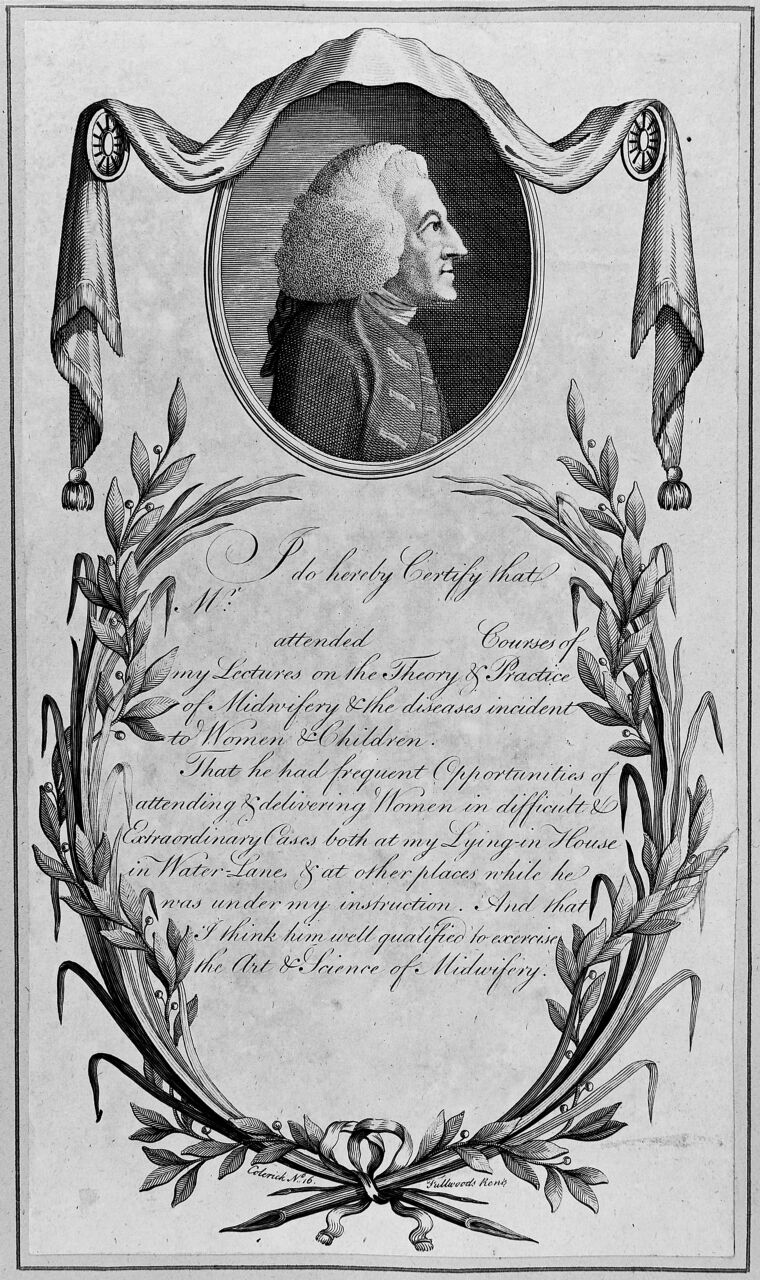 I do hereby Certify that
Mr.
attended Courses of
my Lectures on the Theory & Practice
of Midwifery & the diseases incident
to Women & Children.
That he had frequent Opportunities of
attending & delivering Women in difficult &
Extraordinary Cases both at my Lying-in House
in Water-Lane, & at other places while he
was under my instruction. And that
I think him well qualified to exercise
the Art & Science of Midwifery.
Coterick No. 16. Fullwoods Rents